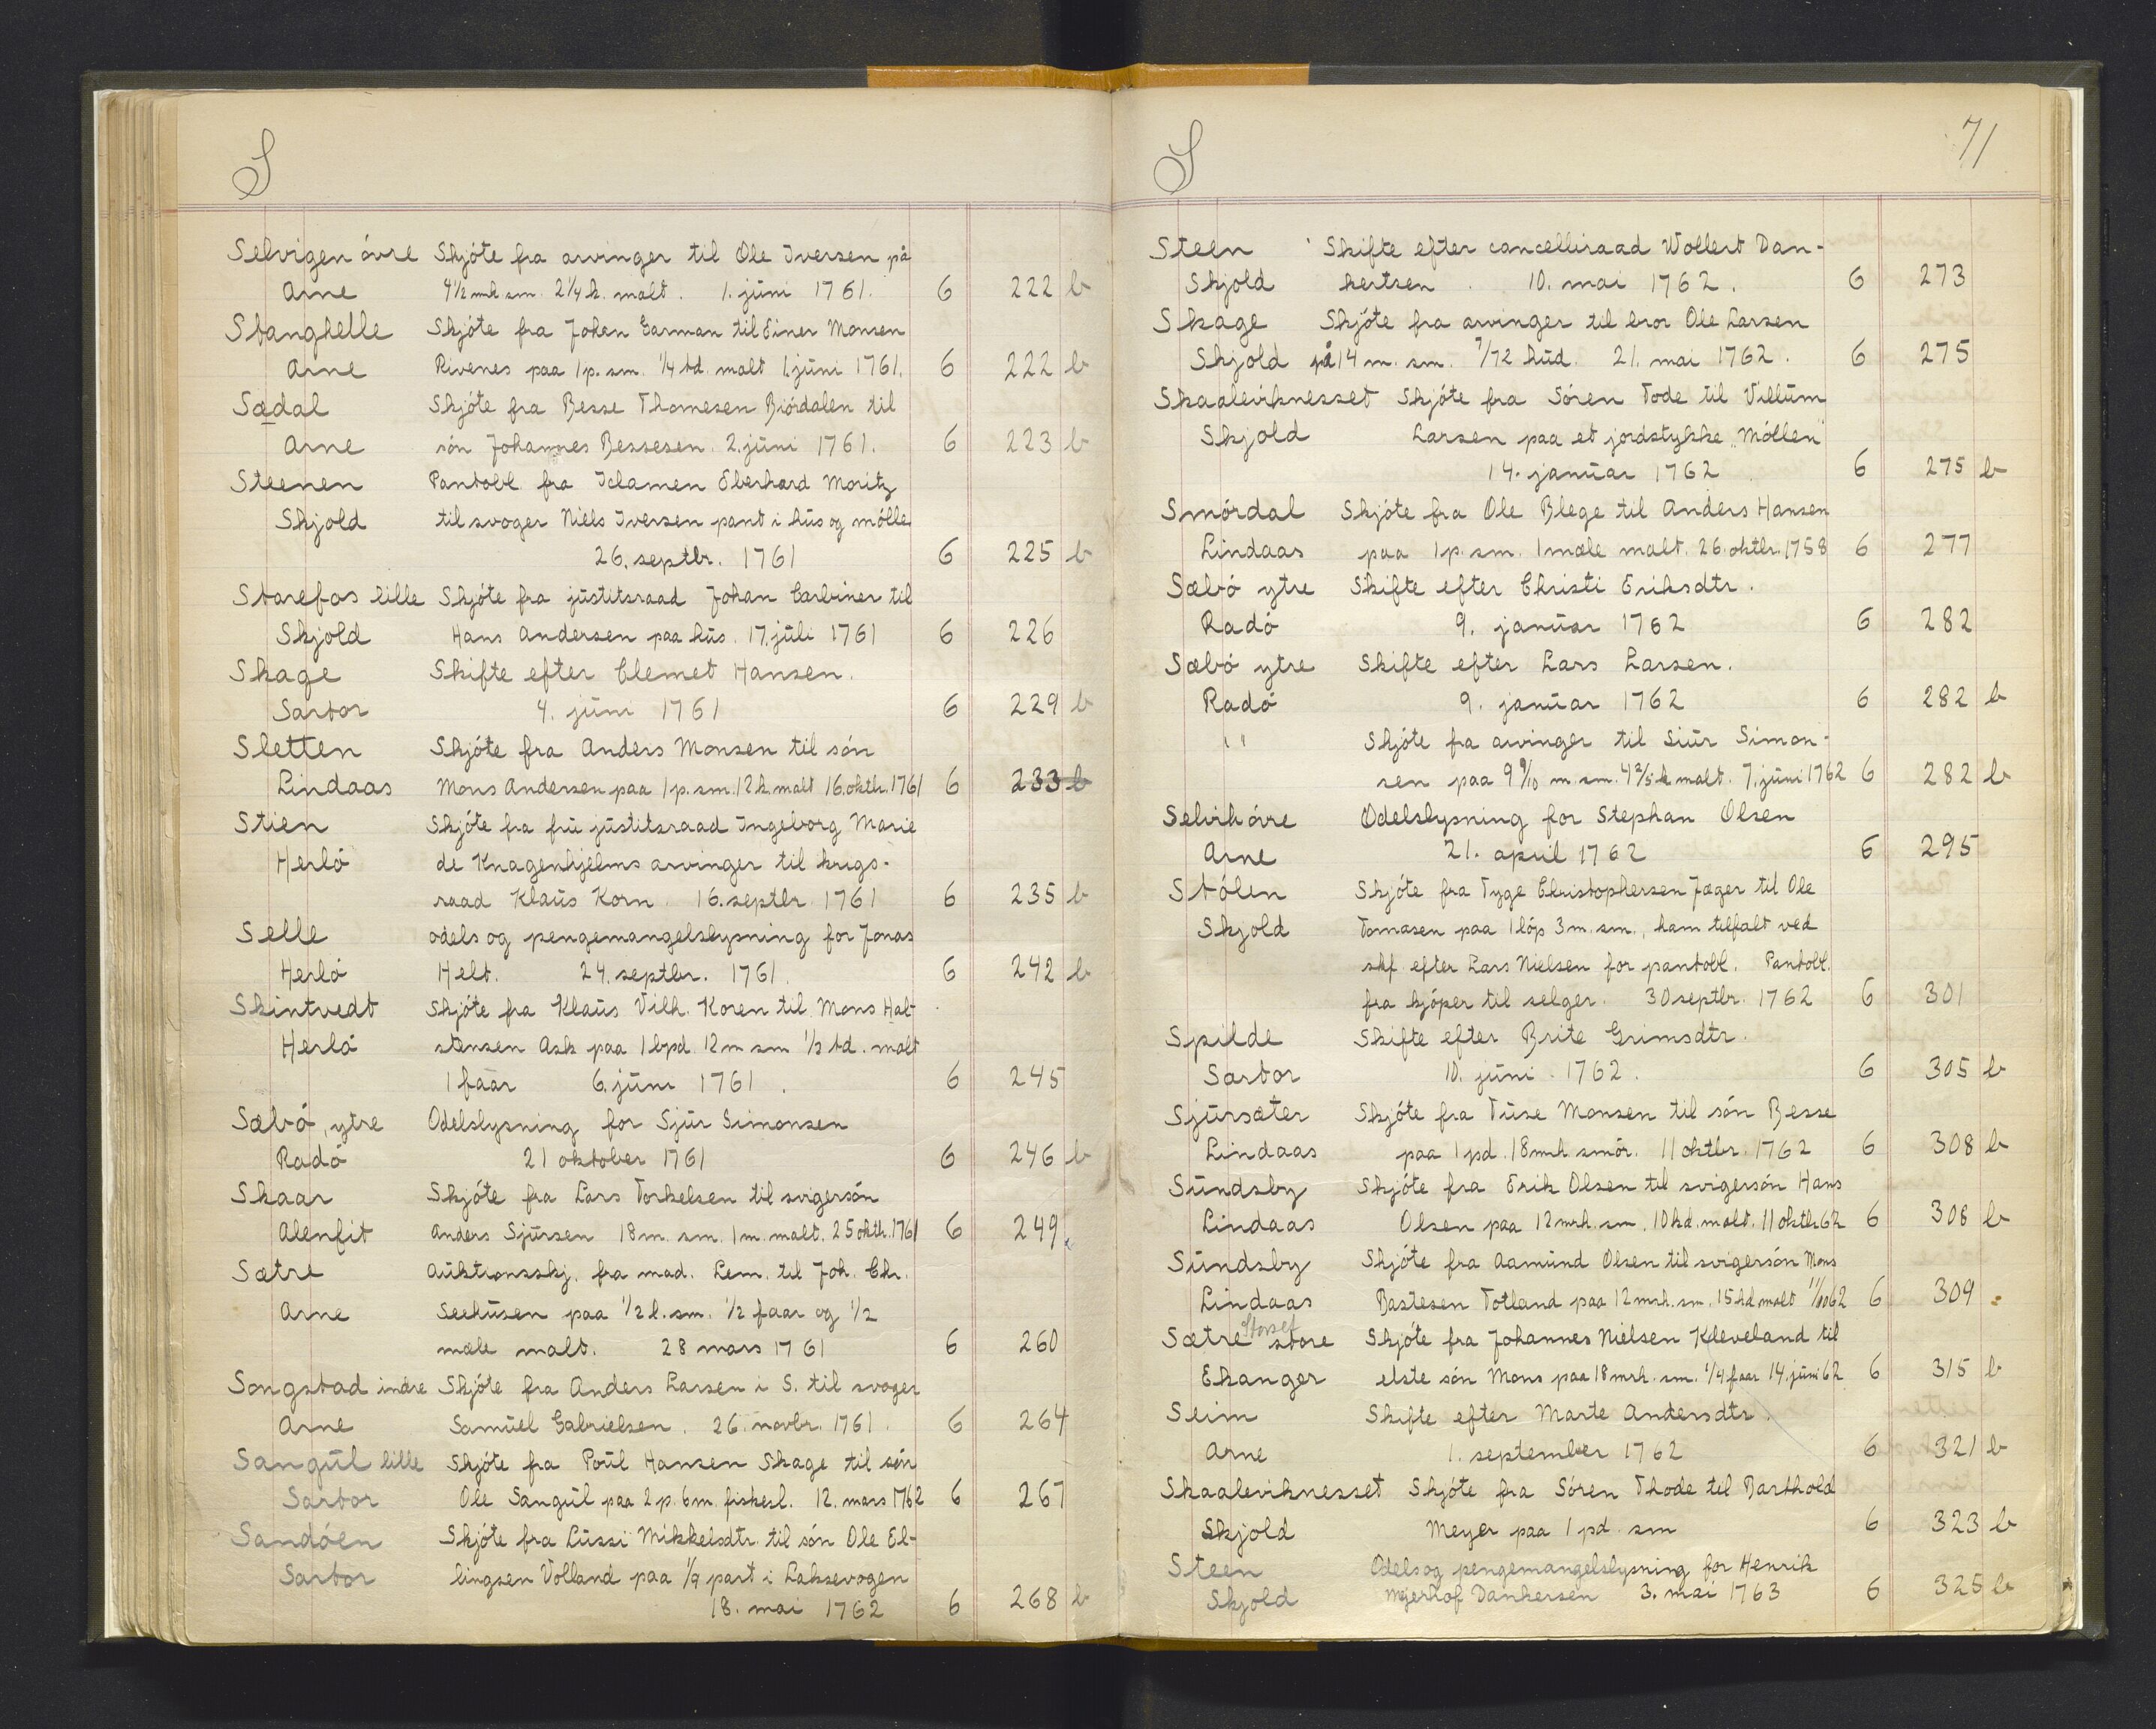 S
Selvigen óvre Skjóte fra arvinger til Ole Iversen på
Arne 4½ mrk sm. 2¼ k. malt. 1. juni 1761. 6 222 b
Stanghelle Skjóte fra Johan Garman til Einer Monsen
Arne Rivenes paa 1 p. sm. ¼ td. malt 1. juni 1761. 6 222 b
Sædal Skjóte fra Besse Thomesen Biórdalen til
Arne són Johannes Bessesen. 2. juni 1761. 6 223 b
Steenen Pantobl. fra Eberhard Moritz
Skjold til svoger Niels Iversen pant i hus og mólle
26. septbr. 1761 6 225 b
Starefos lille Skjóte fra justitsraad Johan Garbiner til
Skjold Hans Andersen paa hus. 17. juli 1761 6 226
Skage Skifte efter Clemet Hansen.
Sartor 4. juni 1761 6 229 b
Sletten Skjóte fra Anders Monsen til són
Lindaas Mons Andersen paa 1 p. sm. 12 k. malt 16. oktbr. 1761 6 233 b
Stien Skjóte fra fru justitsraad Ingeborg Marie
Herló de Knagenhjelms arvinger til krigs-
raad Klaus Korn. 16. septbr. 1761 6 235 b
Selle odels og pengemangelslysning for Jonas
Herló Helt. 24. septbr. 1761. 6 242 b
Skintvedt Skjóte fra Klaus Vilh. Koren til Mons Hal-
Herló stensen Ask paa 1 bpd. 12 m sm ½ td. malt
1 faar 6. juni 1761. 6 245
Sæbó, ytre Odelslysning for Sjur Simonsen
Radó 21 oktober 1761 6 246 b
Skaar Skjóte fra Lars Torkelsen til svigersón
Alenfit Anders Sjursen 18 m. sm. 1 m. malt. 25 oktbr. 1761 6 249
Sætre Auktionsskj. fra mad. Lem. til Joh. Chr.
Arne Seehusen paa ½ l. sm. ½ faar og ½
mæle malt. 28 mars 1761 6 260
Songstad indre Skjóte fra Anders Larsen i S. til svoger
Arne Samuel Gabrielsen. 26. novbr. 1761. 6 264
Sangul lille Skjóte fra Poul Hansen Skage til són
Sartor Ole Sangul paa 2 p. 6 m. fiskesl. 12. mars 1762 6 267
Sandóen Skjóte fra Lussi Mikkelsdtr. til són Ole El-
Sartor lingsen Volland paa 1/9 part i Laksevogen
18. mai 1762 6 268 b
S 71
Steen Skifte efter cancelliraad Wollert Dan-
Skjold kertsen. 10. mai 1762. 6 273
Skage Skjóte fra arvinger til bror Ole Larsen
Skjold på 14 m. sm. 7/72 hud. 21. mai 1762. 6 275
Skaaleviknesset Skjóte fra Sóren Tode til Villum
Skjold Larsen paa et jordstykke "Móllen"
14. januar 1762. 6 275 b
Smórdal Skjóte fra Ole Blege til Anders Hansen
Lindaas paa 1 p. sm. 1 mæle malt. 26. oktbr. 1758 6 277
Sæbó ytre Skifte efter Christi Eriksdtr.
Radó 9. januar 1762 6 282
Sæbó ytre Skifte efter Lars Larsen.
Radó 9. januar 1762 6 282 b
" Skjóte fra arvinger til Siur Simon-
sen paa 9 9/10 m. sm. 4 2/5 k malt. 7. juni 1762 6 282 b
Selvik óvre Odelslysning for Stephan Olsen
Arne 21. april 1762 6 295
Stólen Skjóte fra Tyge Christophersen Jæger til Ole
Skjold Tomasen paa 1 lóp 3 m. sm., ham tilfalt ved
skf. efter Lars Nielsen for pantobl. Pantobl.
fra kjóper til selger. 30 septbr. 1762 6 301
Spilde Skifte efter Brite Grimsdtr.
Sartor 10. juni 1762. 6 305 b
Sjursæter Skjóte fra Tuse Monsen til són Besse
Lindaas paa 1 pd. 18 mrk smór. 11 oktbr. 1762 6 308 b
Sundsby Skjóte fra Erik Olsen til svigersón Hans
Lindaas Olsen paa 12 mrk. sm. 10 kd. malt. 11 oktbr 62 6 308 b
Sundsby Skjóte fra Aamund Olsen til svigersón Mons
Lindaas Bastesen Totland paa 12 mrk. sm. 15 kd malt 11/10 62 6 309
Storset
Sætre store Skjóte fra Johannes Nielsen Kleveland til
Ekanger elste són Mons paa 18 mrk. sm. ¼ faar 14. juni 62 6 315 b
Seim Skifte efter Marte Andersdtr.
Arne 1. september 1762 6 321 b
Skaaleviknesset Skjóte fra Sóren Thode til Barthold
Skjold Meyer paa 1 pd. sm 6 323 b
Steen Odels og pengemangelslysning for Henrik
Skjold Mejerhof Dankersen 3. mai 1763 6 325 b